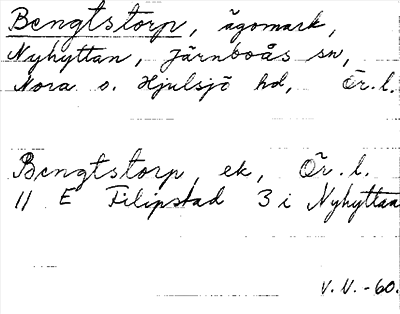 Bengtstorp, ägomark,
Nyhyttan, Järnboås sn,
Nora o. Hjulsjö hd, Ör.l.
Bengtstorp, ek, Ör.l.
11 E Filipstad 3 i Nyhyttan
V.V.-60.